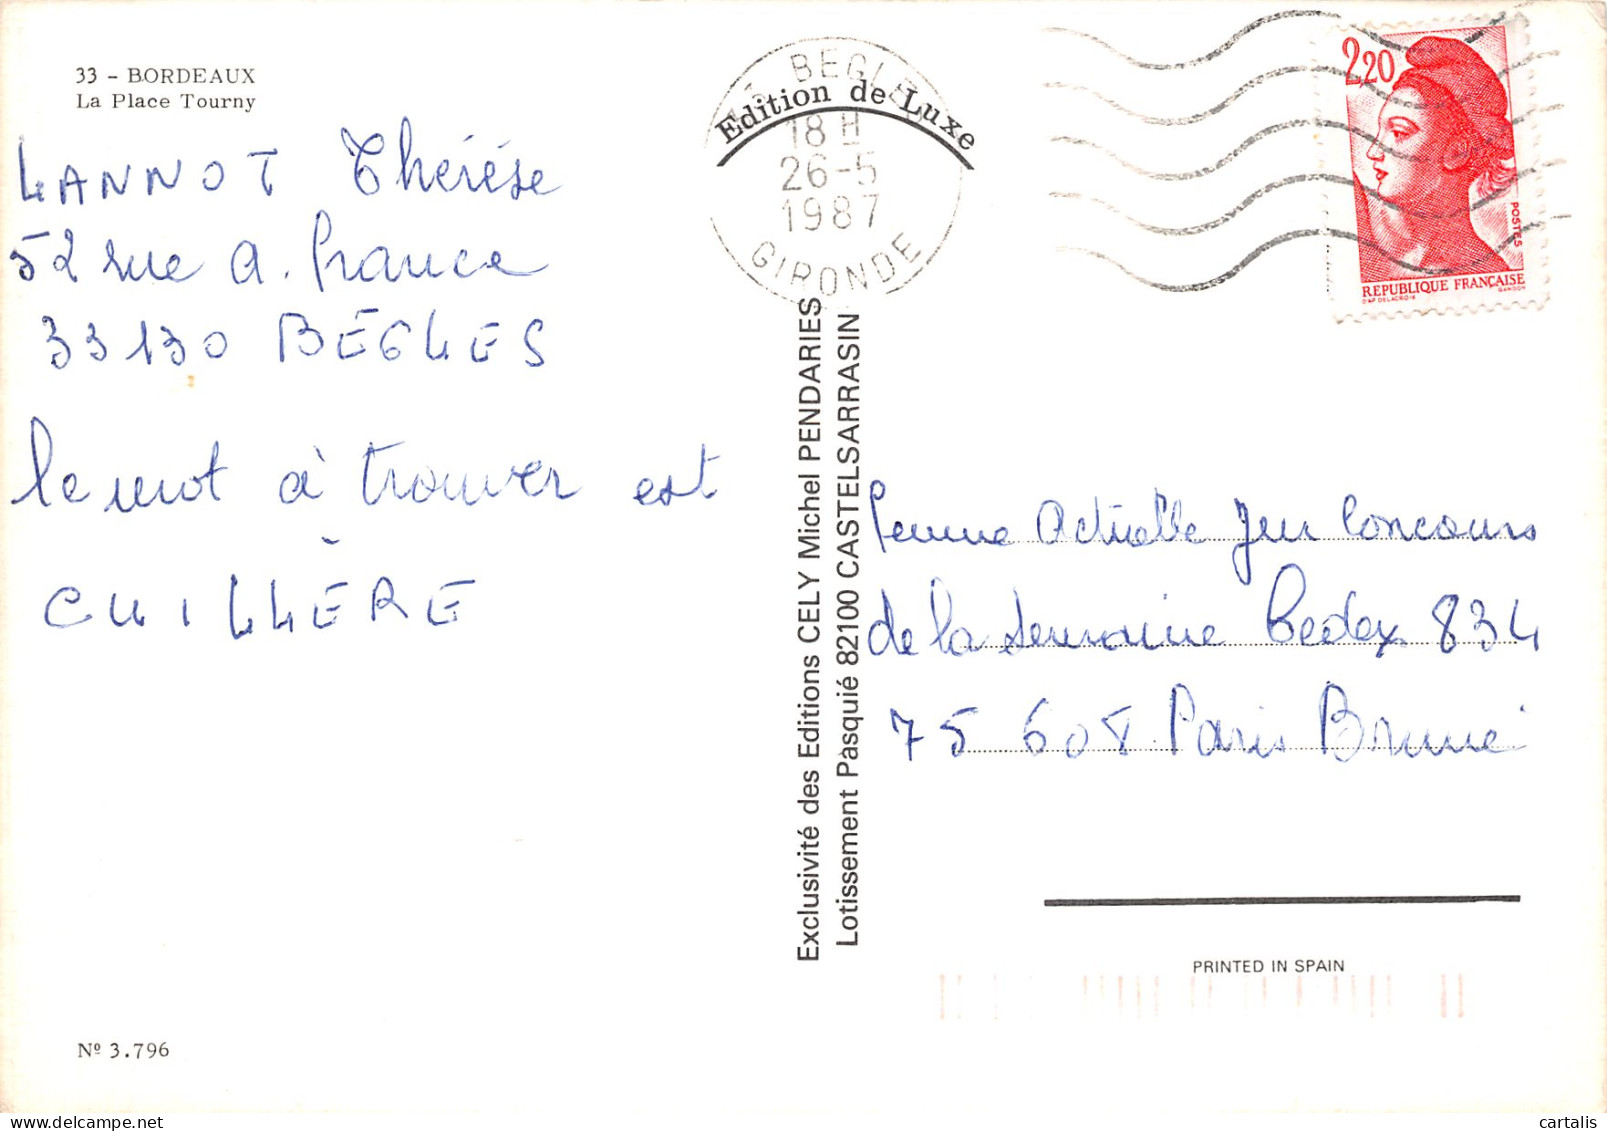 33 - BORDEAUX
La Place Tourny
LANNOT Thérèse
52 rue A. France
33130 BÈGLES
le mot à trouver est
CUILLÈRE
Nº 3.796
Edition de Luxe
33 BEGLES
18 H
26-5
1987
GIRONDE
Exclusivité des Editions CELY Michel PENDARIES
Lotissement Pasquié 82100 CASTELSARRASIN
2,20
POSTES
REPUBLIQUE FRANÇAISE
D'AP DELACROIX GANDON
Femme Actuelle Jeu Concours
de la Semaine Cedex 834
75 608 Paris Brune
PRINTED IN SPAIN
cartalis